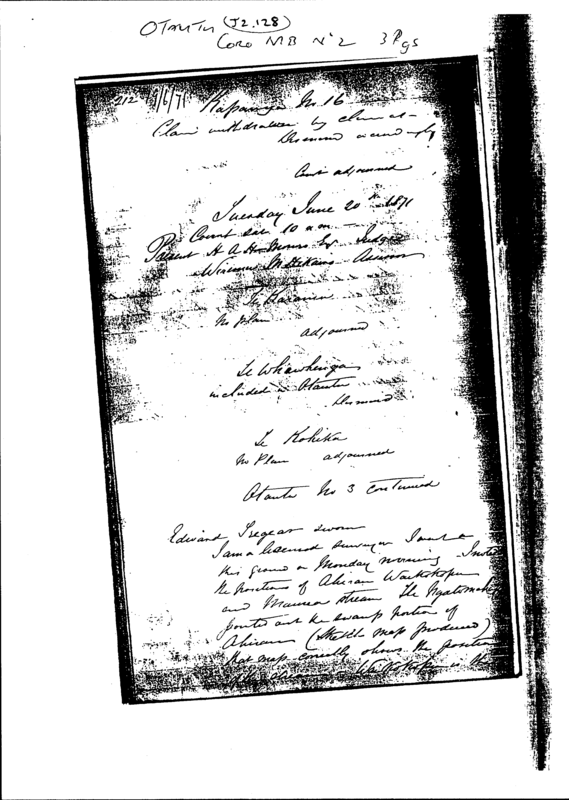 OTAUTU (J2.128)
Coro MB No 2 3 Pgs
212 9/6/71 Kapanga No. 16
Claim withdrawn by claimant
Dismissed accordingly
Court adjourned
Tuesday June 20th 1871
Court sits 10 am
Present H A H Monro Esq Judge
Assessor
No plan
adjourned
Te Whawhenga
included in Otautu
Dismissed
Te Kohika
No Plan adjourned
Otautu No 3 continued
Edward Tregear sworn
I am a licensed surveyor I went to
this ground on Monday morning I noted
the positions of Ahirau
and stream The Ngatomaki
pointed out the swamp portion of
Ahirau (Sketch map produced)
that map correctly shows the position